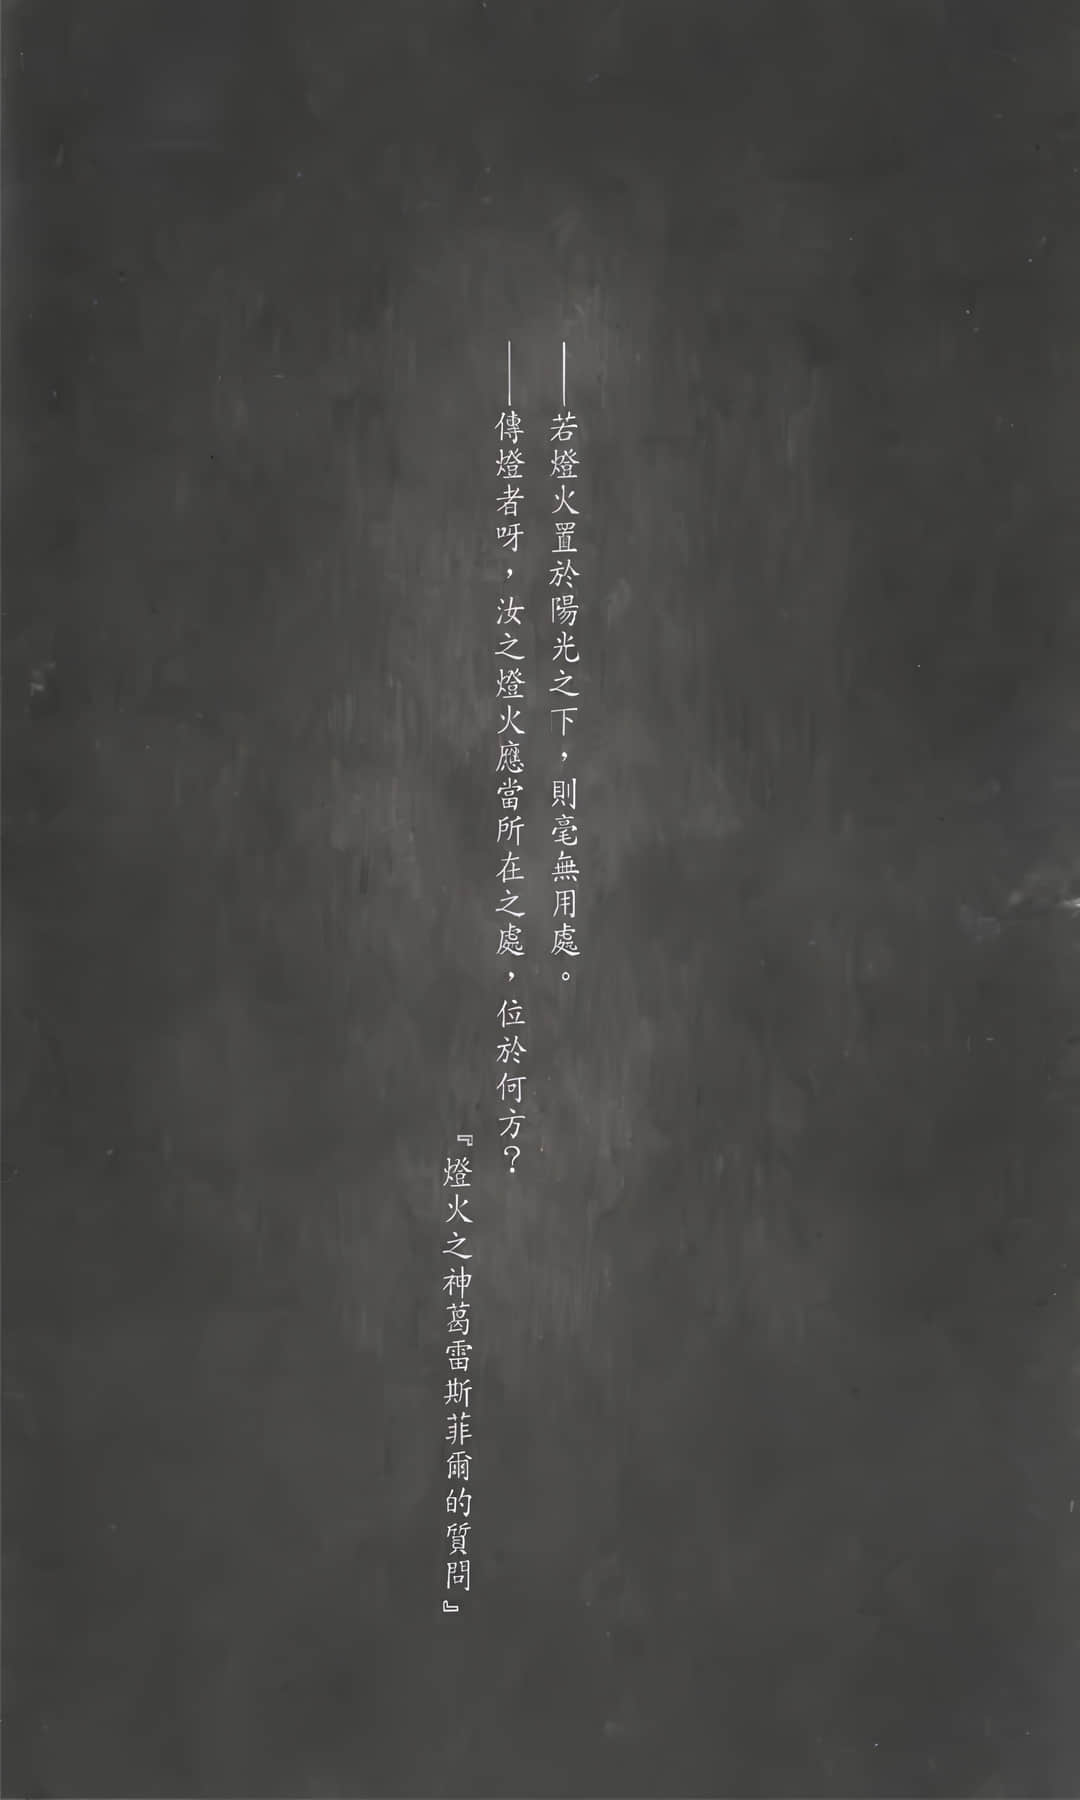 ——若燈火置於陽光之下，則毫無用處。
——傳燈者呀，汝之燈火應當所在之處，位於何方？
『燈火之神葛雷斯菲爾的質問』